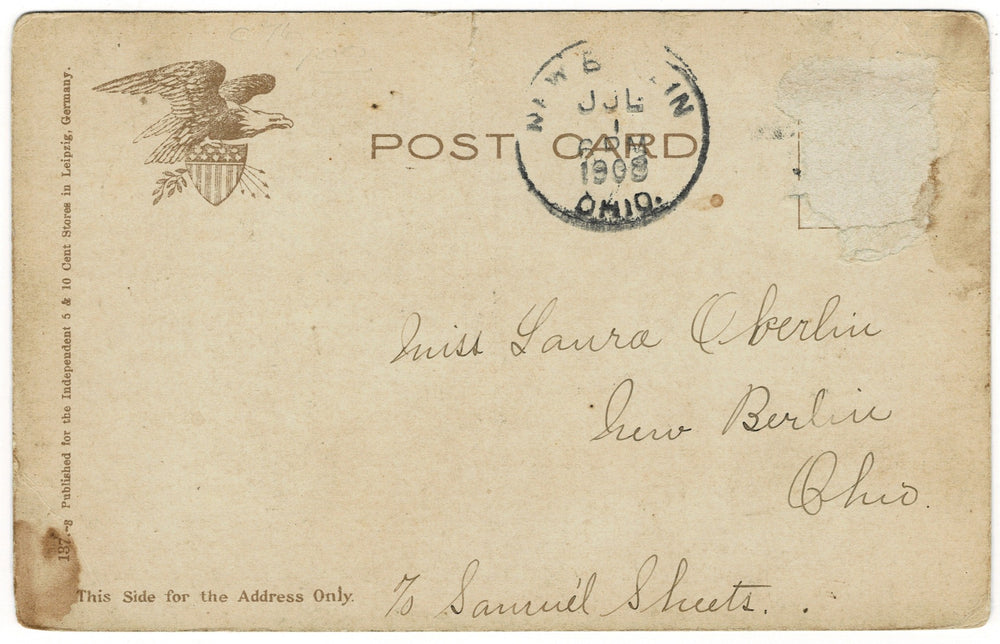 POST CARD
NEW B IN
JUL
1
6 PM
1908
OHIO.
137.-8 Published for the Independent 5 & 10 Cent Stores in Leipzig, Germany.
Miss Laura Oberlin
New Berlin
Ohio.
℅ Samuel Sheets.
This Side for the Address Only.